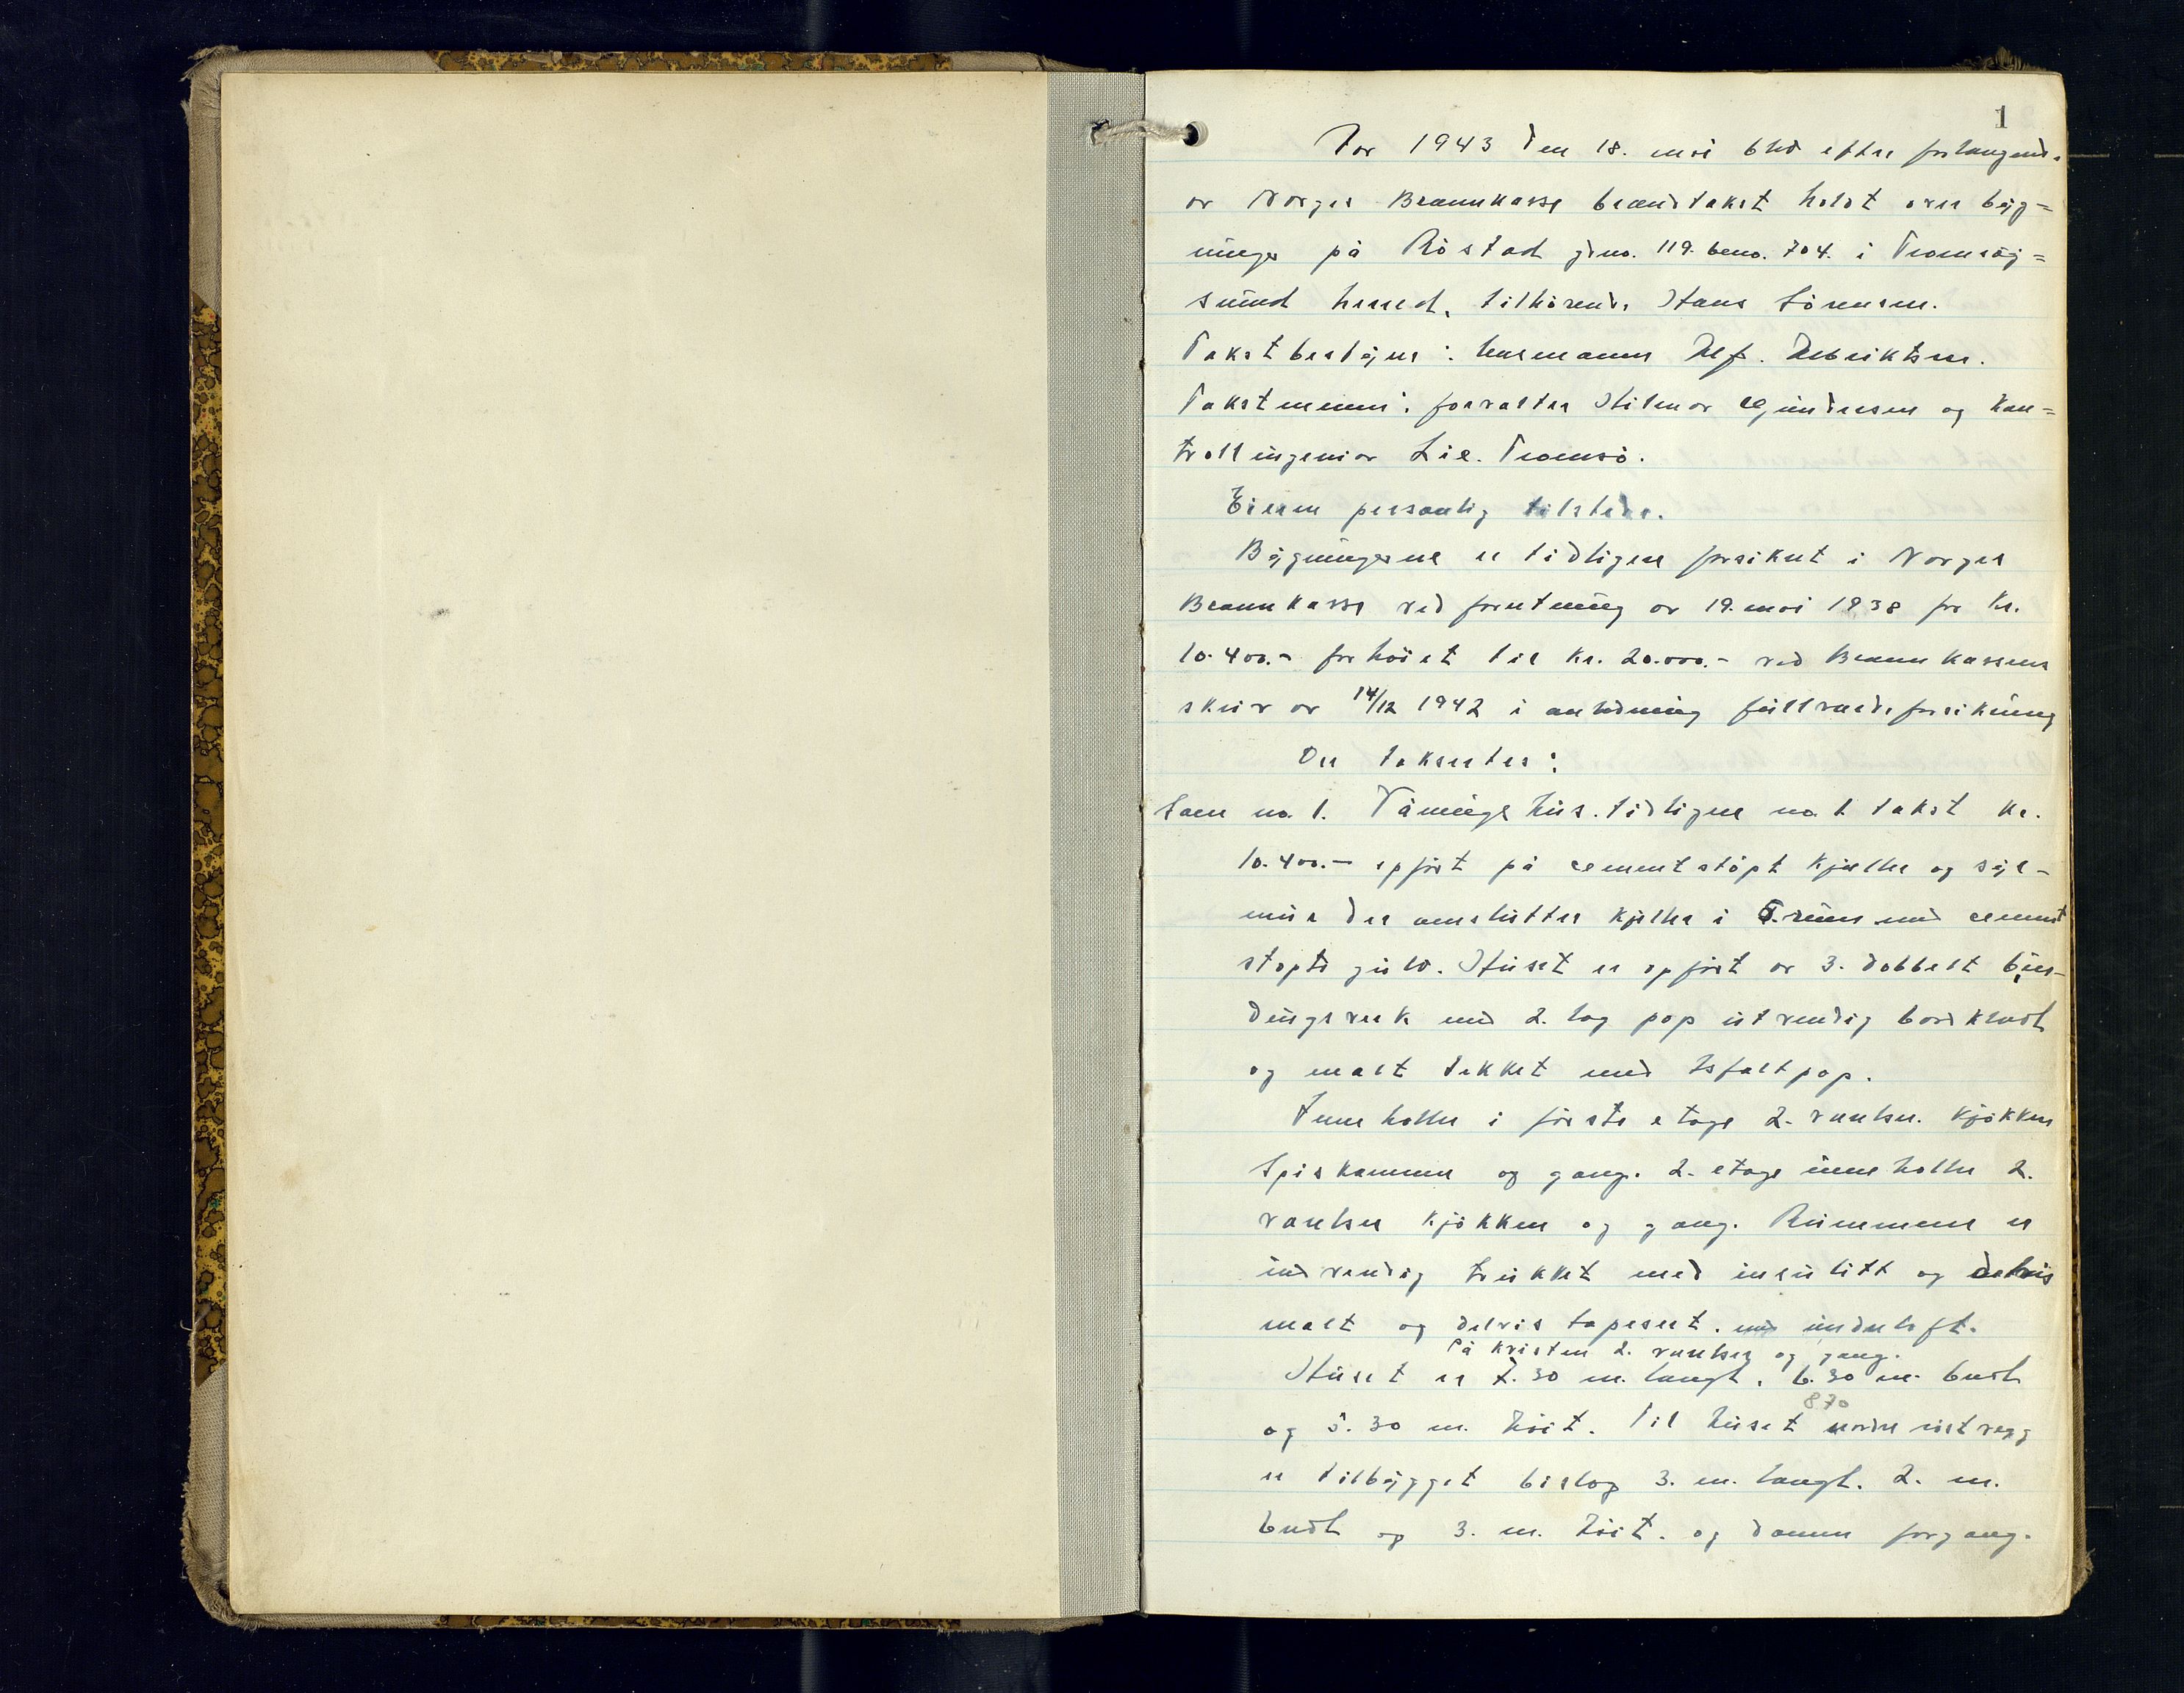 1
År 1943 den 18. mai blev efter forlangende
av Norges Brannkasse brandtakst holdt over byg=
ninger på Råstad gno. 119. bno. 704. i Tromsöy=
sund herred, tilhörende Hans Sörensen.
Takstbestyrer: lensmann Alf. Albriktsen.
Takstmenn: forvalter Hilmar Gundersen og kon=
trollingeniör Lie. Tromsö.
Eieren personlig tilstede.
Bygningerne er tidligere forsikret i Norges
Brannkasse ved forretning av 19. mai 1938 for kr.
10.400.- forhöiet til kr. 20.000.- ved Brannkassens
skriv av 14/12 1942 i anledning fullverdiforsikring
Der takseres:
Som no. 1. Våningshus. tidligere no. 1 takst kr.
10.400.- opfört på cementstöpt kjeller og syl-
mur der omslutter kjeller i rum med cement
stöpt gulv. Huset er opfört av 3. dobbelt bin-
dingsverk med 2. lag pap utvendig bordklædt
og malt tekket med Asfaltpap.
Inneholder i förste etage 2. værelser. kjökken
Spiskammer og gang. 2. etage inneholder 2.
værelser kjökken og gang. Rummene er
indvendig trukket med insulitt og delvis
malt og delvis tapesert. med underloft.
På kvisten 2. værelser og gang.
Huset er 7.30 m. langt. 6.30 m. bredt
870
og 5.30 m. höit. Til huset nordre röstvegg
er tilbygget bislag 3. m. langt. 2. m.
bredt og 3. m. höit. og danner forgang.